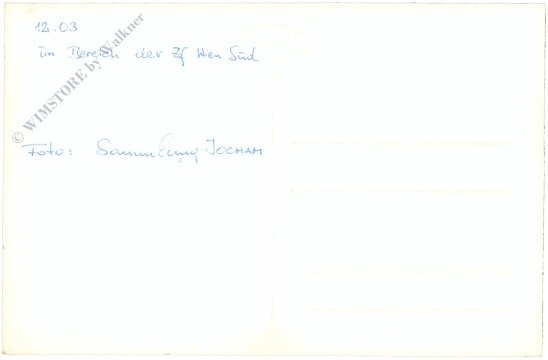 12.03
im Bereich der Zf Wien Süd
© WIMSTORE by Walkner
Foto: Sammlung JOCHAM